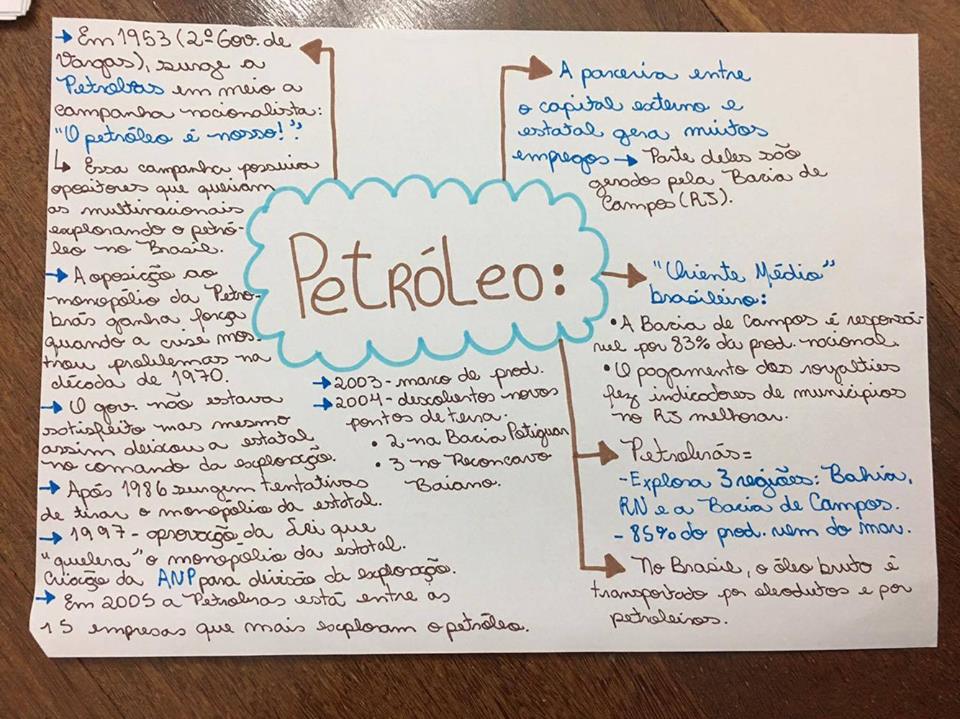 Petróleo:
→ Em 1953 (2º Gov. de
Vargas), surge a
Petrobras em meio a
campanha nacionalista:
"O petróleo é nosso!".
↳ Essa campanha possuia
opositores que queriam
as multinacionais
explorando o petró-
leo no Brasil.
→ A oposição ao
monopólio da Petro-
brás ganha força
quando a crise mos-
trou problemas na
década de 1970.
→ O gov. não estava
satisfeito mas mesmo
assim deixou a estatal
no comando da exploração.
→ Após 1986 surgem tentativas
de tirar o monopólio da estatal.
→ 1997 - aprovação da Lei que
"quebra" o monopólio da estatal.
Criação da ANP para divisão da exploração.
→ Em 2005 a Petrobras está entre as
15 empresas que mais exploram o petróleo.
→ 2003 - marco de prod.
→ 2004 - descobertos novos
pontos de terra.
• 2 na Bacia Potiguar
• 3 no Recôncavo
Baiano.
A parceria entre
o capital externo e
estatal gera muitos
empregos → Parte deles são
gerados pela Bacia de
Campos (RJ).
"Oriente Médio"
brasileiro:
• A Bacia de Campos é responsá-
vel por 83% da prod. nacional.
• O pagamento dos royalties
fez indicadores de municípios
no RJ melhorar.
Petrobrás =
- Explora 3 regiões: Bahia,
RN e a Bacia de Campos.
- 85% do prod. vem do mar.
No Brasil, o óleo bruto é
transportado por oleodutos e por
petroleiros.